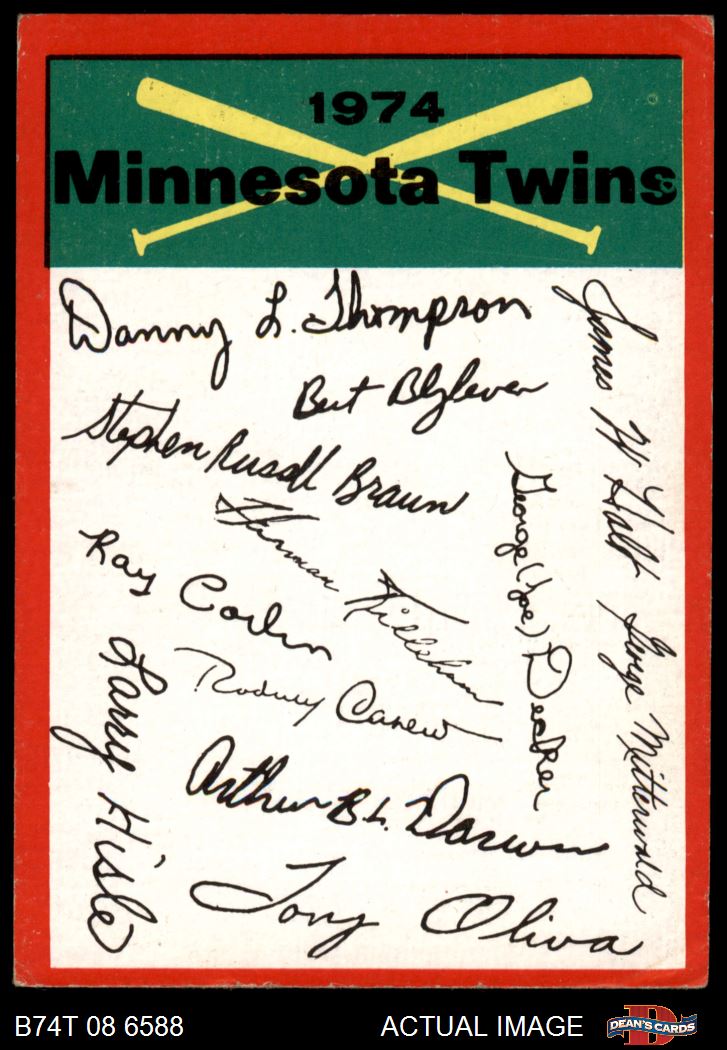 1974
Minnesota Twins
Danny L. Thompson
Bert Blyleven
Stephen Russell Braun
Herman Killebrew
Ray Corbin
Rodney Carew
Larry Hisle
Arthur B L. Darwin
Tony Oliva
George (Joe) Decker
James W Holt
George Mitterwald
B74T 08 6588
ACTUAL IMAGE
D
DEAN'S CARDS